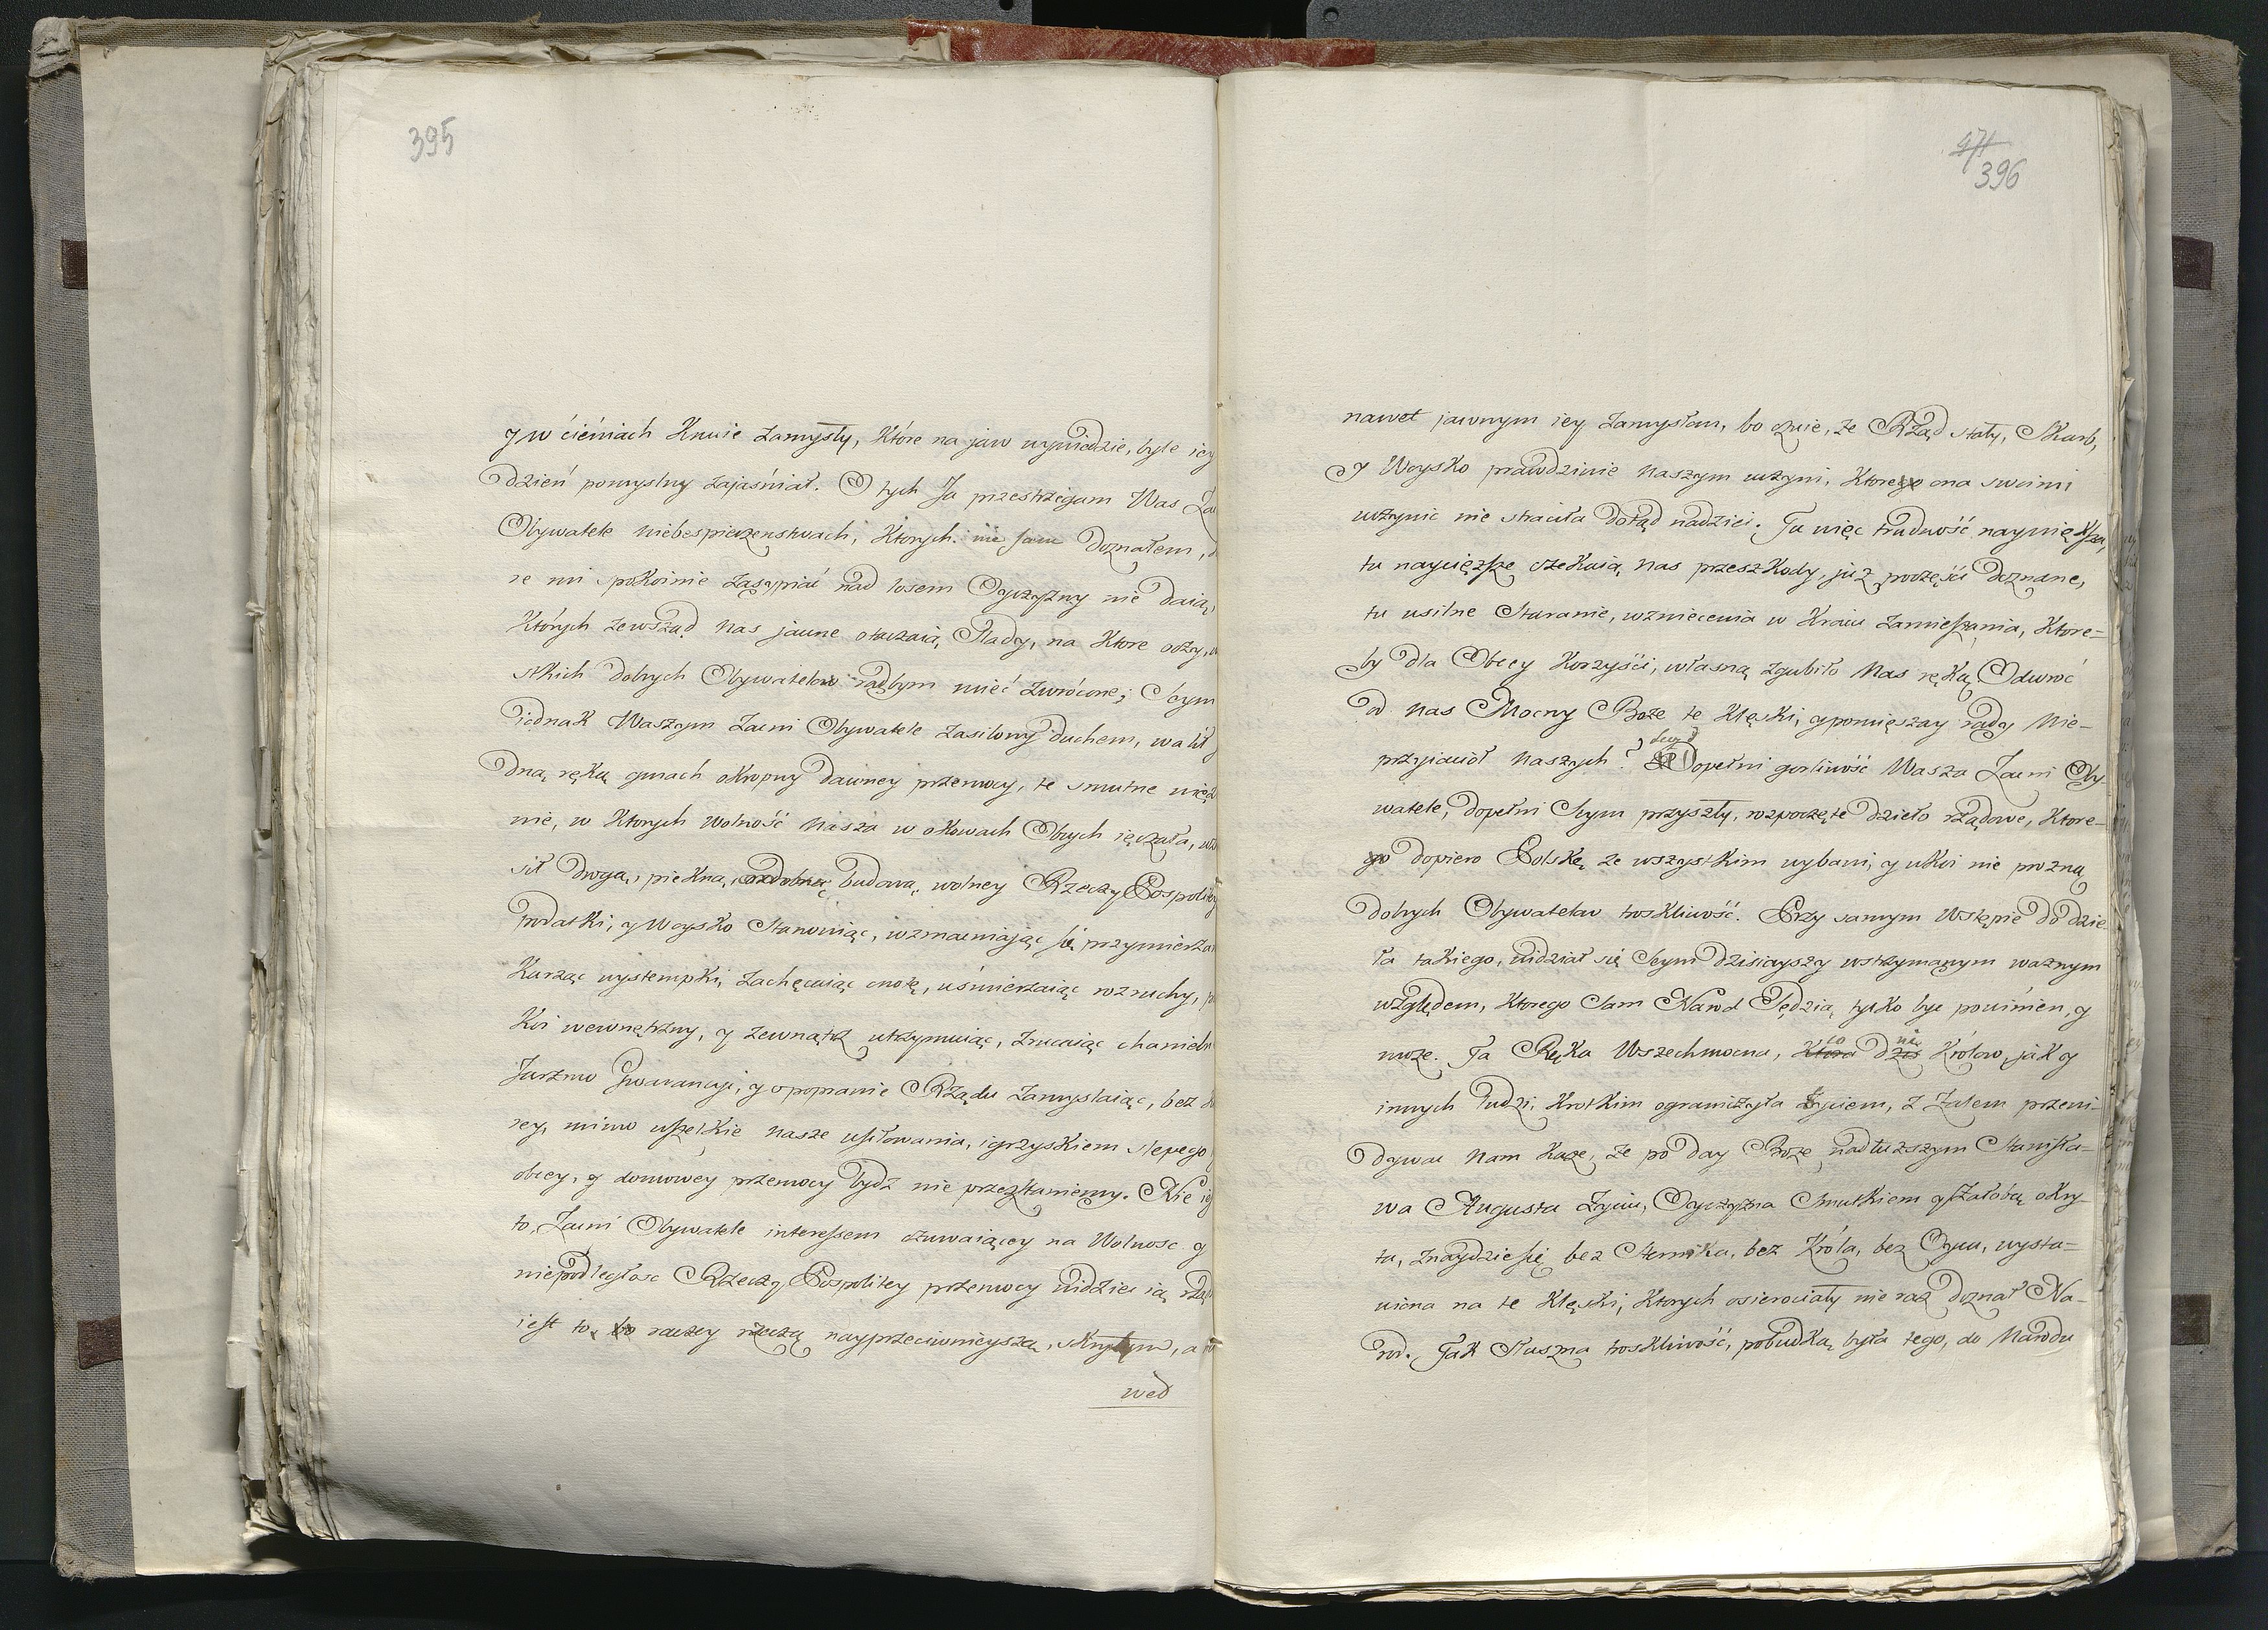 395
y w cieniach Knuie zamysły, Które na jaw wywiedzie, byle iey
dzień pomyslny zajaśniał. O tych Ja przestrzegam Was
Obywatele niebespieczenstwach, Ktorych nie sam doznałem,
re mi spokoinie zasypiać nad losem Oyczyzny nie daią,
Których zewsząd nas jawne otaczaią Slady, na Ktore oczy,
stkich dobrych Obywatelow radbym mieć zwrócone; Seym
iednak Waszym Zacni Obywatele zasilony duchem, walił
dną ręką gmach okropny dawney przemocy, te smutne więz
nie, w Ktorych wolność nasza w okowach Obcych ięczała,
sił drogą, piękną, ozdobną budową, wolney Rzeczy Pospolitey
podatki, y Woysko Stanowiąc, wzmacniając się przymierza
Karząc występki, zachęcaiąc cnotę, uśmierzaiąc rozruchy,
Kói wewnętrzny, y zewnątrz utrzymuiąc, zrucaiąc
Jarzmo Gwarancyi, y o poprawie Rządu zamyslaiąc, bez
rey, mimo wszelkie nasze usiłowania, igrzyskiem slepego
obcey, y domowey przemocy bydz nie przestaniemy. Nie
to, Zacni Obywatele interessem czuwaiącey na Wolnosc y
niepodległosc Rzeczy Pospolitey przemocy widziec ią
iest to, bo raczey rzeczą nayprzeciwnieyszą, skrytym, a
wed
471
396
nawet jawnym iey zamysłom, bo czuie, że Rząd stały, Skarb,
y Woysko prawdziwie naszym uczyni, Ktorego ona swoimi
uczynic nie straciła dotąd nadziei. Tu więc trudność naywiększa,
tu naycięższe czekaią nas przeszkody, już poczęści doznane,
tu usilne Staranie, wzniecenia w Kraiu zamieszania, Ktore=
by dla Obcey Korzyści, własną zgubiło Nas ręką, Odwroć
od nas Mocny Boże te Klęski, y pomięszay rady Nie=
przyiaciół naszych! Dopełni gorliwość Wasza Zacni Oby-
watele, dopełni Seym przyszły, rozpoczęte dzieło rządowe, Ktore-
go dopiero Polskę ze wszystkim wybawi, y ukoi nie prozną
dobrych Obywatelow troskliwość. Przy samym Wstępie do dzie
ła takiego, widział się Seym dzisieyszy wstrzymanym waznym
względem, Ktorego Sam Narod Sędzią tylko byc powinien, y
może. Ta Ręka Wszechmocna, Ktora co dzis ni Królow, jak y
innych ludzi, krotkim ograniczyła życiem, z żalem przewi-
dywac Nam każe, że po day Boże naddłuższym Stanisła-
wa Augusta życiu, Oyczyzna Smutkiem y Żałobą okry
ta, znaydzie się bez Sternika, bez Króla, bez Oyca, wysta=
wiona na te Klęski, Ktorych osierociały nie raz doznał Na-
rod. Tak słuszna troskliwość, pobudką była tego, do Narodu